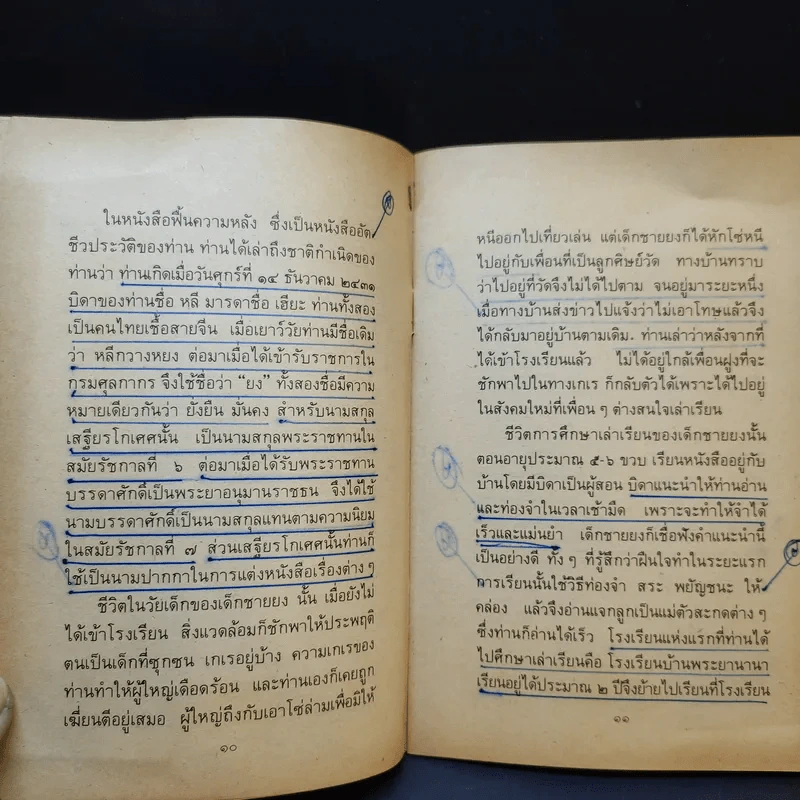 ในหนังสือฟื้นความหลัง ซึ่งเป็นหนังสืออัต
ชีวประวัติของท่าน ท่านได้เล่าถึงชาติกำเนิดของ
ท่านว่า ท่านเกิดเมื่อวันศุกร์ที่ ๑๔ ธันวาคม ๒๔๓๑
บิดาของท่านชื่อ หลี มารดาชื่อ เฮียะ ท่านทั้งสอง
เป็นคนไทยเชื้อสายจีน เมื่อเยาว์วัยท่านมีชื่อเดิม
ว่า หลีกวางหยง ต่อมาเมื่อได้เข้ารับราชการใน
กรมศุลกากร จึงใช้ชื่อว่า "ยง" ทั้งสองชื่อมีความ
หมายเดียวกันว่า ยั่งยืน มั่นคง สำหรับนามสกุล
เสฐียรโกเศศนั้น เป็นนามสกุลพระราชทานใน
สมัยรัชกาลที่ ๖ ต่อมาเมื่อได้รับพระราชทาน
บรรดาศักดิ์เป็นพระยาอนุมานราชธน จึงได้ใช้
นามบรรดาศักดิ์เป็นนามสกุลแทนตามความนิยม
ในสมัยรัชกาลที่ ๗ ส่วนเสฐียรโกเศศนั้นท่านก็
ใช้เป็นนามปากกาในการแต่งหนังสือเรื่องต่าง ๆ
ชีวิตในวัยเด็กของเด็กชายยง นั้น เมื่อยังไม่
ได้เข้าโรงเรียน สิ่งแวดล้อมก็ชักพาให้ประพฤติ
ตนเป็นเด็กที่ซุกซน เกเรอยู่บ้าง ความเกเรของ
ท่านทำให้ผู้ใหญ่เดือดร้อน และท่านเองก็เคยถูก
เฆี่ยนตีอยู่เสมอ ผู้ใหญ่ถึงกับเอาโซ่ล่ามเพื่อมิให้
๑๐
หนีออกไปเที่ยวเล่น แต่เด็กชายยงก็ได้หักโซ่หนี
ไปอยู่กับเพื่อนที่เป็นลูกศิษย์วัด ทางบ้านทราบ
ว่าไปอยู่ที่วัดจึงไม่ได้ไปตาม จนอยู่มาระยะหนึ่ง
เมื่อทางบ้านส่งข่าวไปแจ้งว่าไม่เอาโทษแล้วจึง
ได้กลับมาอยู่บ้านตามเดิม. ท่านเล่าว่าหลังจากที่
ได้เข้าโรงเรียนแล้ว ไม่ได้อยู่ใกล้เพื่อนฝูงที่จะ
ชักพาไปในทางเกเร ก็กลับตัวได้เพราะได้ไปอยู่
ในสังคมใหม่ที่เพื่อน ๆ ต่างสนใจเล่าเรียน
ชีวิตการศึกษาเล่าเรียนของเด็กชายยงนั้น
ตอนอายุประมาณ ๕-๖ ขวบ เรียนหนังสืออยู่กับ
บ้านโดยมีบิดาเป็นผู้สอน บิดาแนะนำให้ท่านอ่าน
และท่องจำในเวลาเช้ามืด เพราะจะทำให้จำได้
เร็วและแม่นยำ เด็กชายยงก็เชื่อฟังคำแนะนำนี้
เป็นอย่างดี ทั้ง ๆ ที่รู้สึกว่าฝืนใจทำในระยะแรก
การเรียนนั้นใช้วิธีท่องจำ สระ พยัญชนะ ให้
คล่อง แล้วจึงอ่านแจกลูกเป็นแม่ตัวสะกดต่าง ๆ
ซึ่งท่านก็อ่านได้เร็ว โรงเรียนแห่งแรกที่ท่านได้
ไปศึกษาเล่าเรียนคือ โรงเรียนบ้านพระยานานา
เรียนอยู่ได้ประมาณ ๒ ปีจึงย้ายไปเรียนที่โรงเรียน
๑๑